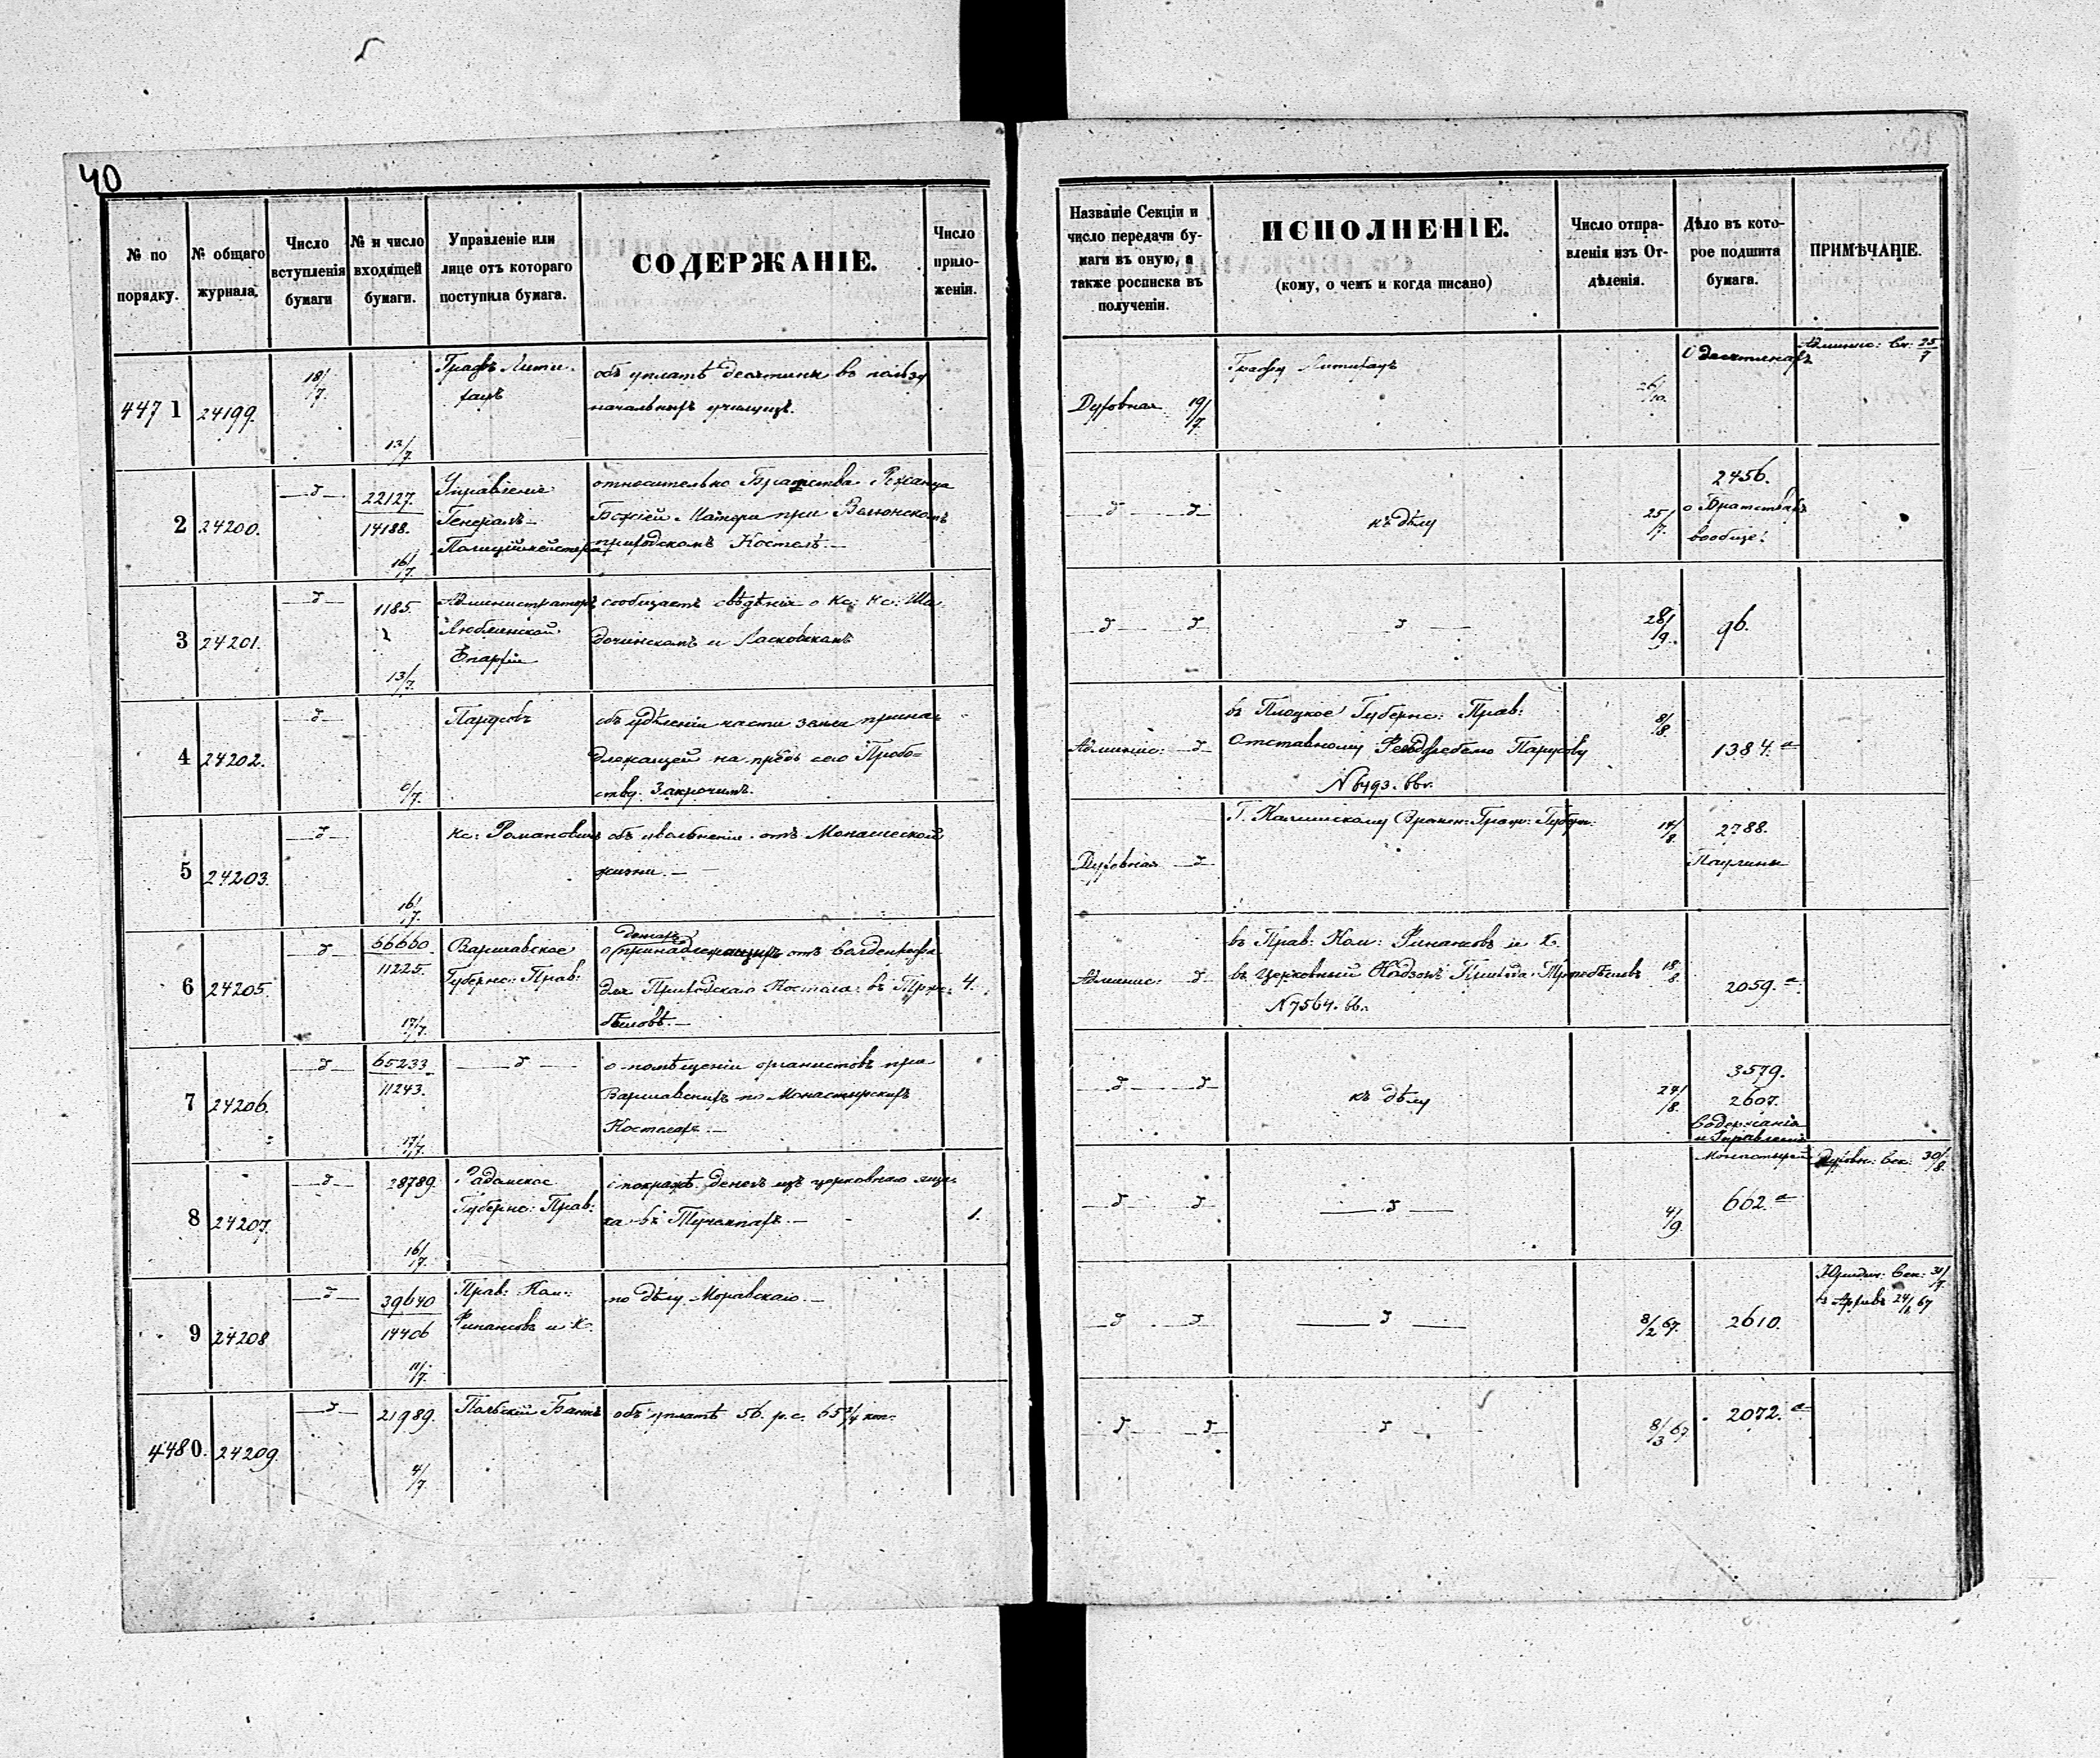 40
№ по порядку.
№ общаго журнала.
Число вступленія бумаги
№ и число входящей бумаги.
Управленіе или лице отъ котораго поступила бумага.
СОДЕРЖАНІЕ.
Число приложеніи.
Названіе Секціи и число передачи бумаги въ оную, а также росписка въ полученіи.
ИСПОЛНЕНІЕ.
(кому, о чемъ и когда писано)
Число отправленія изъ Отдѣленія.
Дѣло въ которое подшита бумага.
ПРИМѢЧАНІЕ.
4471 24199. 18/7. 13/7. Графъ
объ уплатѣ десятины въ пользу
начальныхъ училищъ.
Духовная 19/7. Графу 26/10. О десятинахъ Админис: Ск: 25/7
2 24200. —д— 22127. 14188. 16/7. Управленіе
Генералъ-
Полиціймейстера
относительно Братства
Божіей Матери при Велюнскомъ
приходскомъ Костелѣ.—
—д— —д— къ дѣлу 25/7. 2456.
о Братствахъ
вообще.
3 24201. —д— 1185. 13/7. Администраторъ
Люблинской
Епархіи
сообщаетъ свѣдѣнія о Кс: Кс:
и Ласковскомъ
—д— —д— —д— 28/9. 96.
4 24202. —д— 6/7. Парусовъ
объ удѣленіи части земли принад-
лежащей на предь сего Пробо-
ству Закрочимъ.
Админис: —д— въ Плоцкое Губернс: Прав:
Отставному Фельдфебелю Парусову
N 6493. 66г.
8/8. 1384. а
5 24203. —д— 16/7. кс: Романовичъ
объ увольненіи отъ Монашеской
жизни.—
Духовная —д— Г. Калишскому Гражд: Губерн: 14/8. 2788.
Паулины
6 24205. —д— 66660 11225. 17/7. Варшавское
Губернс: Прав:
для Приходскаго Костела въ
4.
Админис: —д— въ Прав: Ком: Финансовъ и К.
въ Церковный
N 7564. 66г.
18/8. 2059. а
7 24206. —д— 65233 11243. 17/7. —д—
о помѣщеніи органистовъ при
Варшавскихъ по Монастырскихъ
Костелахъ.—
—д— —д— къ дѣлу 24/8. 3579.
2607.
Содержанія
и Управленія
Монастырей
8 24207. —д— 28789. 16/7. Радомское
Губернс: Прав:
о покражѣ денегъ изъ церковнаго ящи-
ка въ Тучемпахъ.—
1.
—д— —д— —д— 4/9. 662. а Духовн: Сек: 30/8.
9 24208 —д— 39640 14406 11/7. Прав: Ком:
Финансовъ и К.
по дѣлу Моравскаго.—
—д— —д— —д— 8/2 67. 2610. Юридич: Сек: 31/7.
въ Архивъ 67
4480. 24209. —д— 21989. 4/7. Польскій Банкъ объ уплатѣ 56. р. с. 65 3/4 коп:
—д— —д— —д— 8/3 67. 2072. а